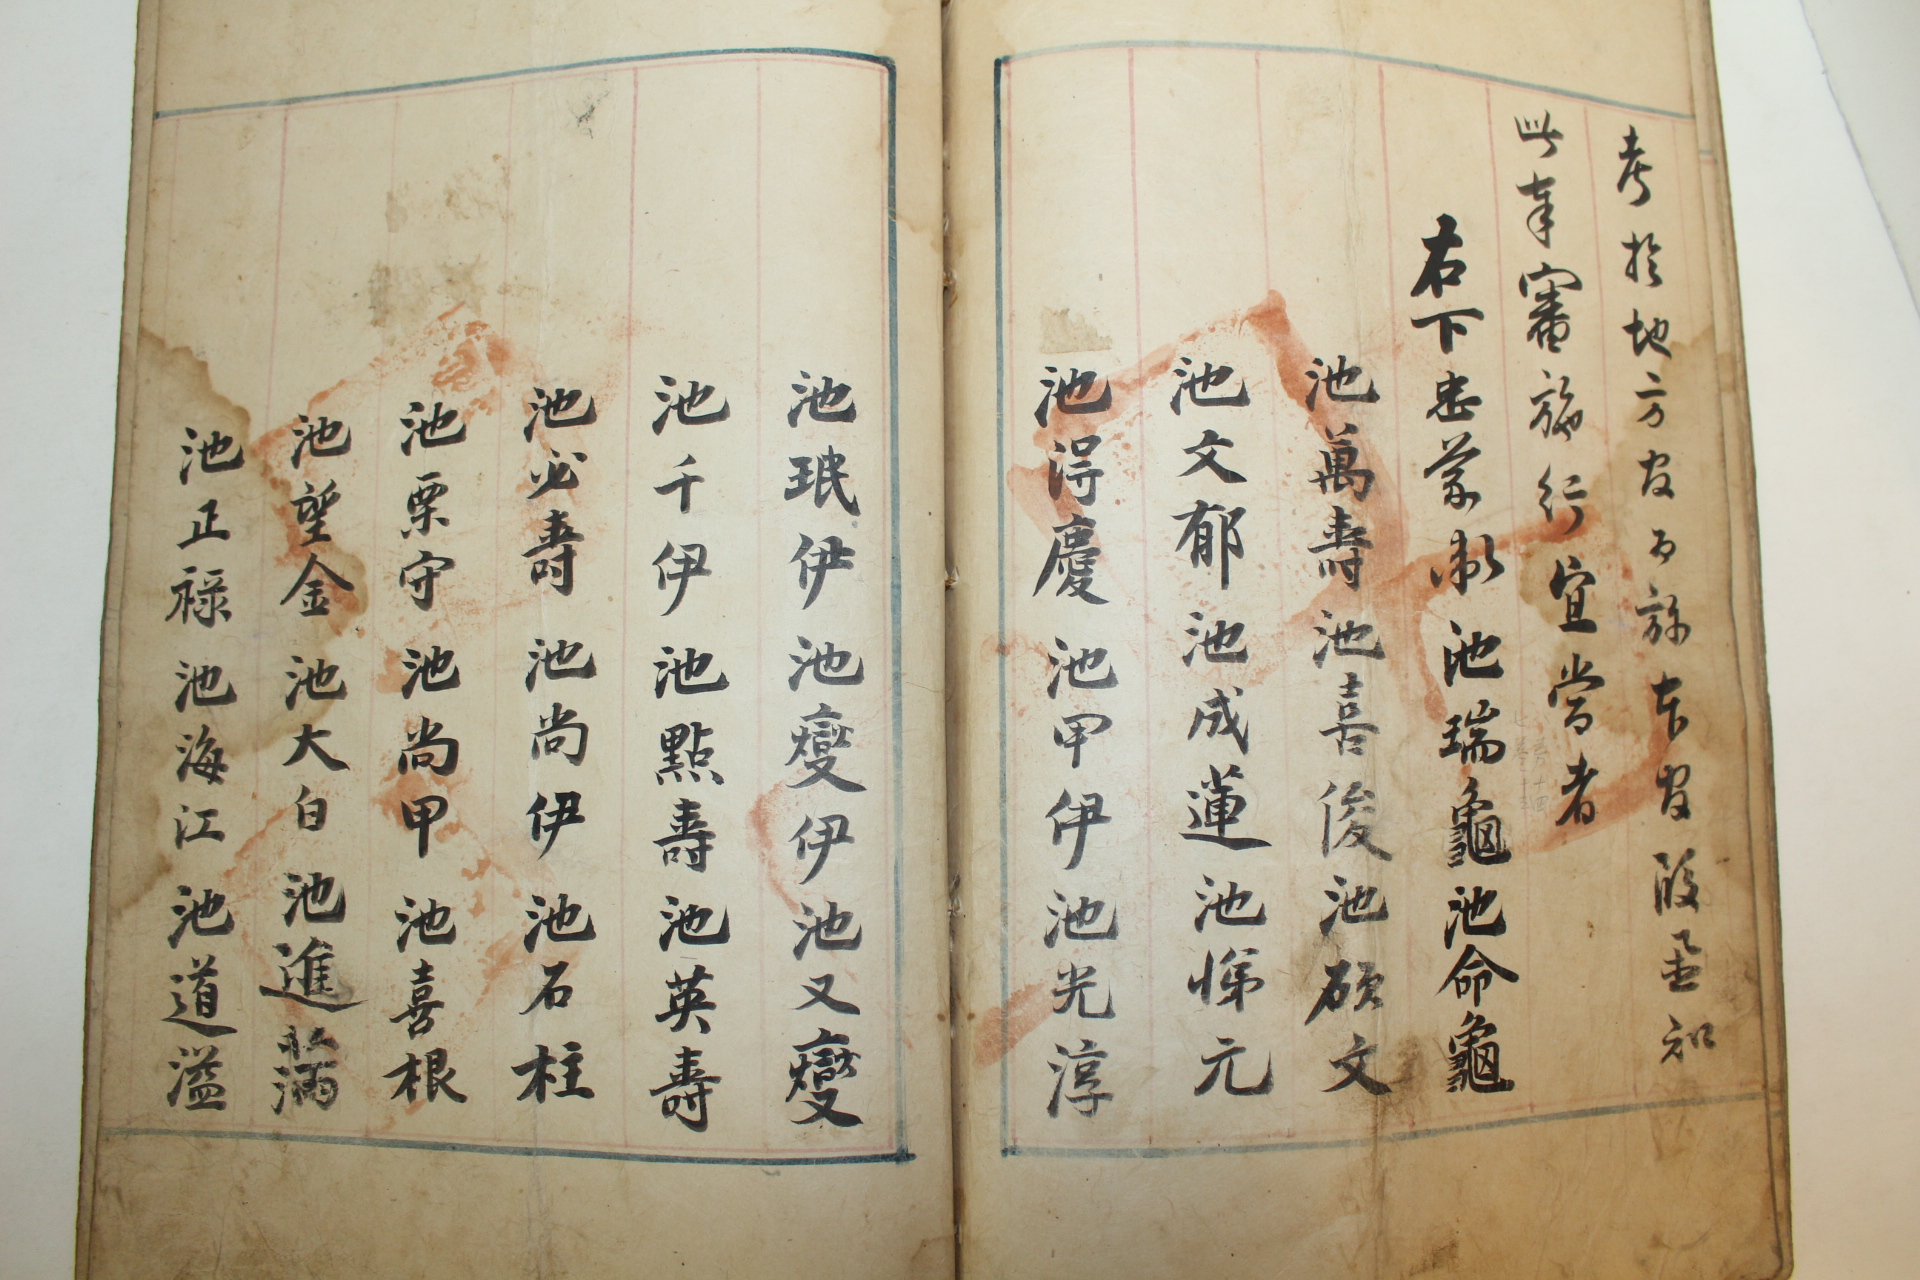 考於地方官爲旀本官段並知
此辛審施行宜當者
右下忠蒙 池瑞龜 池命龜
池萬壽 池喜俊 池碩文
池文郁 池成蓮 池悌元
池得慶 池甲伊 池光淳
池珉伊 池變伊 池又變
池千伊 池點壽 池英壽
池必壽 池尚伊 池石柱
池栗守 池尚甲 池喜根
池望金 池大白 池進滿
池正祿 池海江 池道溢